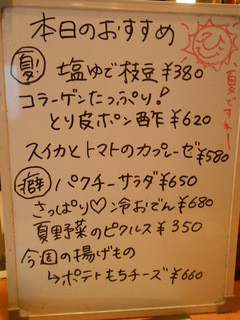 本日のおすすめ
夏ですねー
夏! 塩ゆで枝豆 ¥380
コラーゲンたっぷり!
とり皮ポン酢 ¥620
スイカとトマトのカプレーゼ ¥580
癖 パクチーサラダ ¥650
さっぱり♡冷おでん ¥680
夏野菜のピクルス ¥350
今週の揚げもの
↳ポテトもちチーズ ¥660